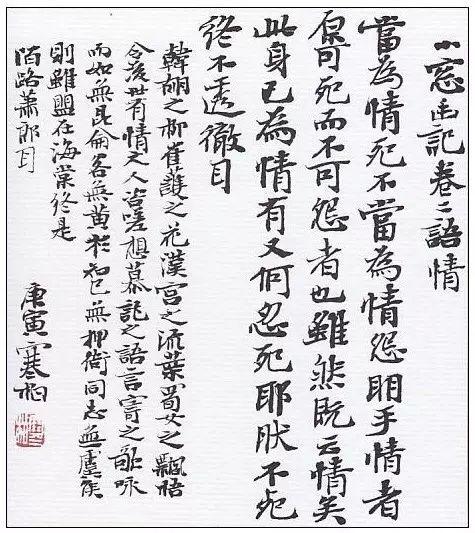 小窓幽記卷二語情
當為情死不當為情怨明乎情者
原可死而不可怨者也雖然既云情矣
此身已為情有又何忍死耶然不死
終不透徹耳
韓翃之柳崔護之花漢宮之流葉蜀女之飄梧
令後世有情之人咨嗟想慕託之語言寄之歌咏
而如無昆侖客無黃衫知己無押衙同志無虞侯
則雖盟在海棠終是
陌路蕭郎耳
庚寅寒柏